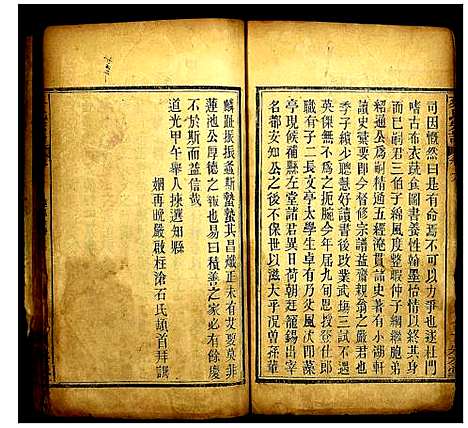 司因慨然曰是有命焉不可以力爭也遂杜門
嗜古布衣蔬食圖書養性翰墨怡情以終其身
而已嗣君三伯子綿風度整暇仲子綱繼胞弟
稻通公為嗣精通五經淹貫諸史著有小湖軒
讀史彙要即今督修宗譜益齋親翁之歲貢君
季子縮少聰慧好讀書後改業武場三試不到
英保無不為之扼腕今年届九旬恩授登仕郎
職有子二長文亭太學生卓有乃父風次開藻
亭現候補縣左堂諸君異日荷朝廷寵錫出宰
名都安知公之後不保世以滋大乎況曾孫輩
麟趾振振螽斯蟄蟄其昌熾正未有艾要莫非
蓮池公厚德之報也易曰積善之家必有餘慶
不於斯而益信哉
道光甲午舉人揀選知縣
姻再晚嚴啟枉滄石氏頓首拜譔